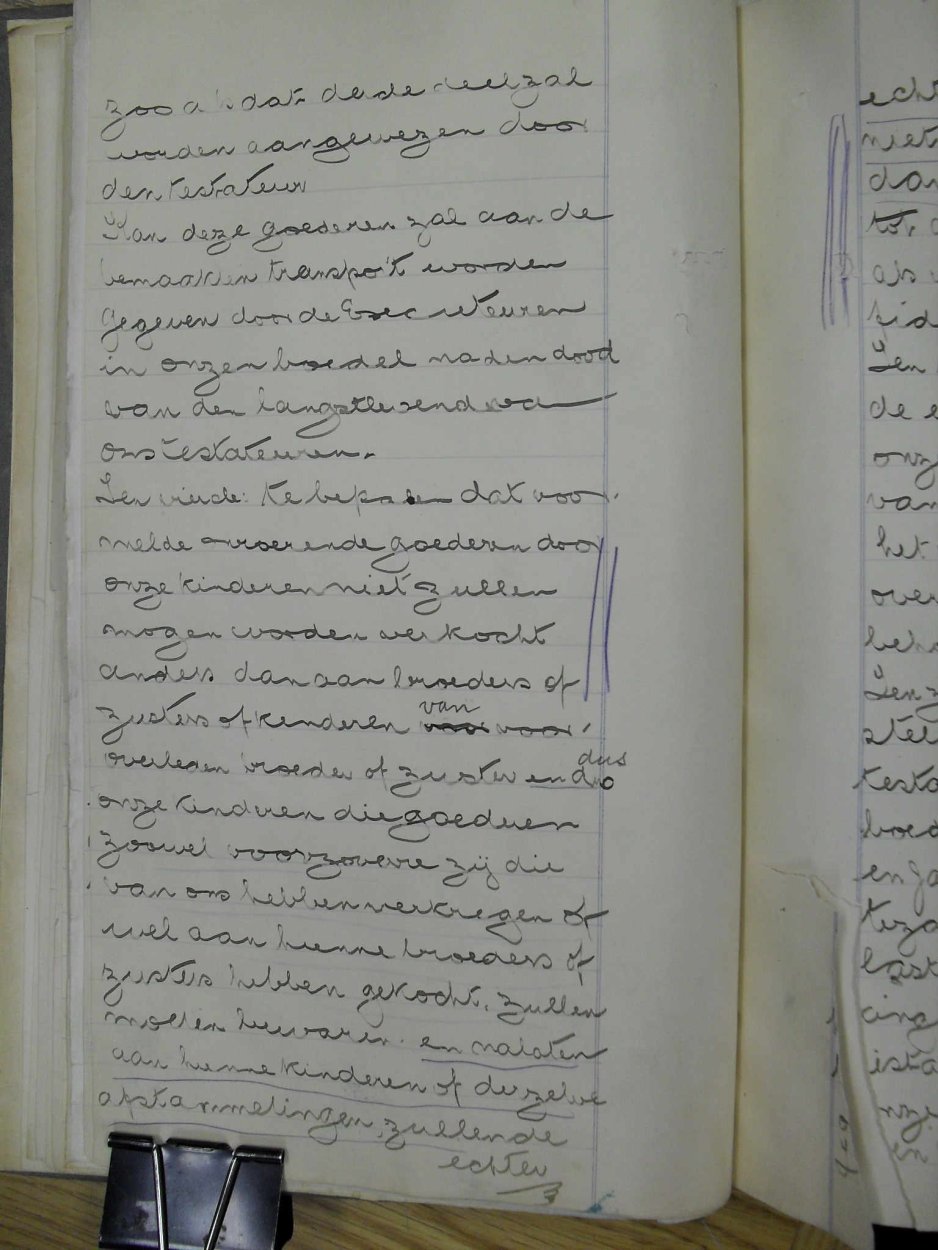 zoo a dat de de deel zal
worden aangewezen door
den testateur
Van deze goederen zal aan de
bemaakten transport worden
gegeven door de Executeuren
in onzen boedel na den dood
van den langstlevend va
ons testateuren.
Ten vierde: te bepalen dat voor
melde onroerende goederen door
onze kinderen niet zullen
mogen worden verkocht
anders dan aan broeders of
zusters of kinderen van
overleden broeder of zuster en dus
onze kinderen die goederen
zoowel voorzoverre zij die
van ons hebben verkregen of
wel aan hunne broeders of
zusters hebben gekocht, zullen
moeten bewaren en nalaten
aan hunne kinderen of derzelve
afstammelingen, zullende
echter
echt
niet
dan
tot
als
fid
Ten
de e
onz
van
het
over
beh
Ten z
stel
testa
boed
en ja
teza
last
ista
nze
en